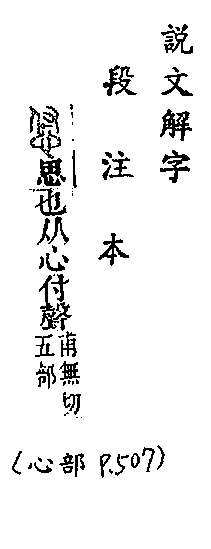 說文解字
段注本
思也从心付聲甫無切五部
(心部 P.507)